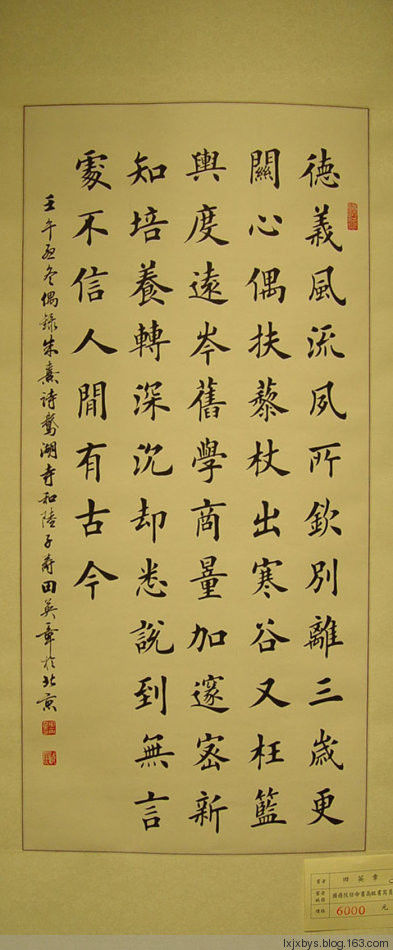 德義風流夙所欽別離三歲更
關心偶扶藜杖出寒谷又枉籃
輿度遠岑舊學商量加邃密新
知培養轉深沉却愁說到無言
處不信人間有古今
壬午孟冬偶錄朱熹詩鵝湖寺和陸子壽田英章於北京
田英章
6000 元
lxjxbys.blog.163.com